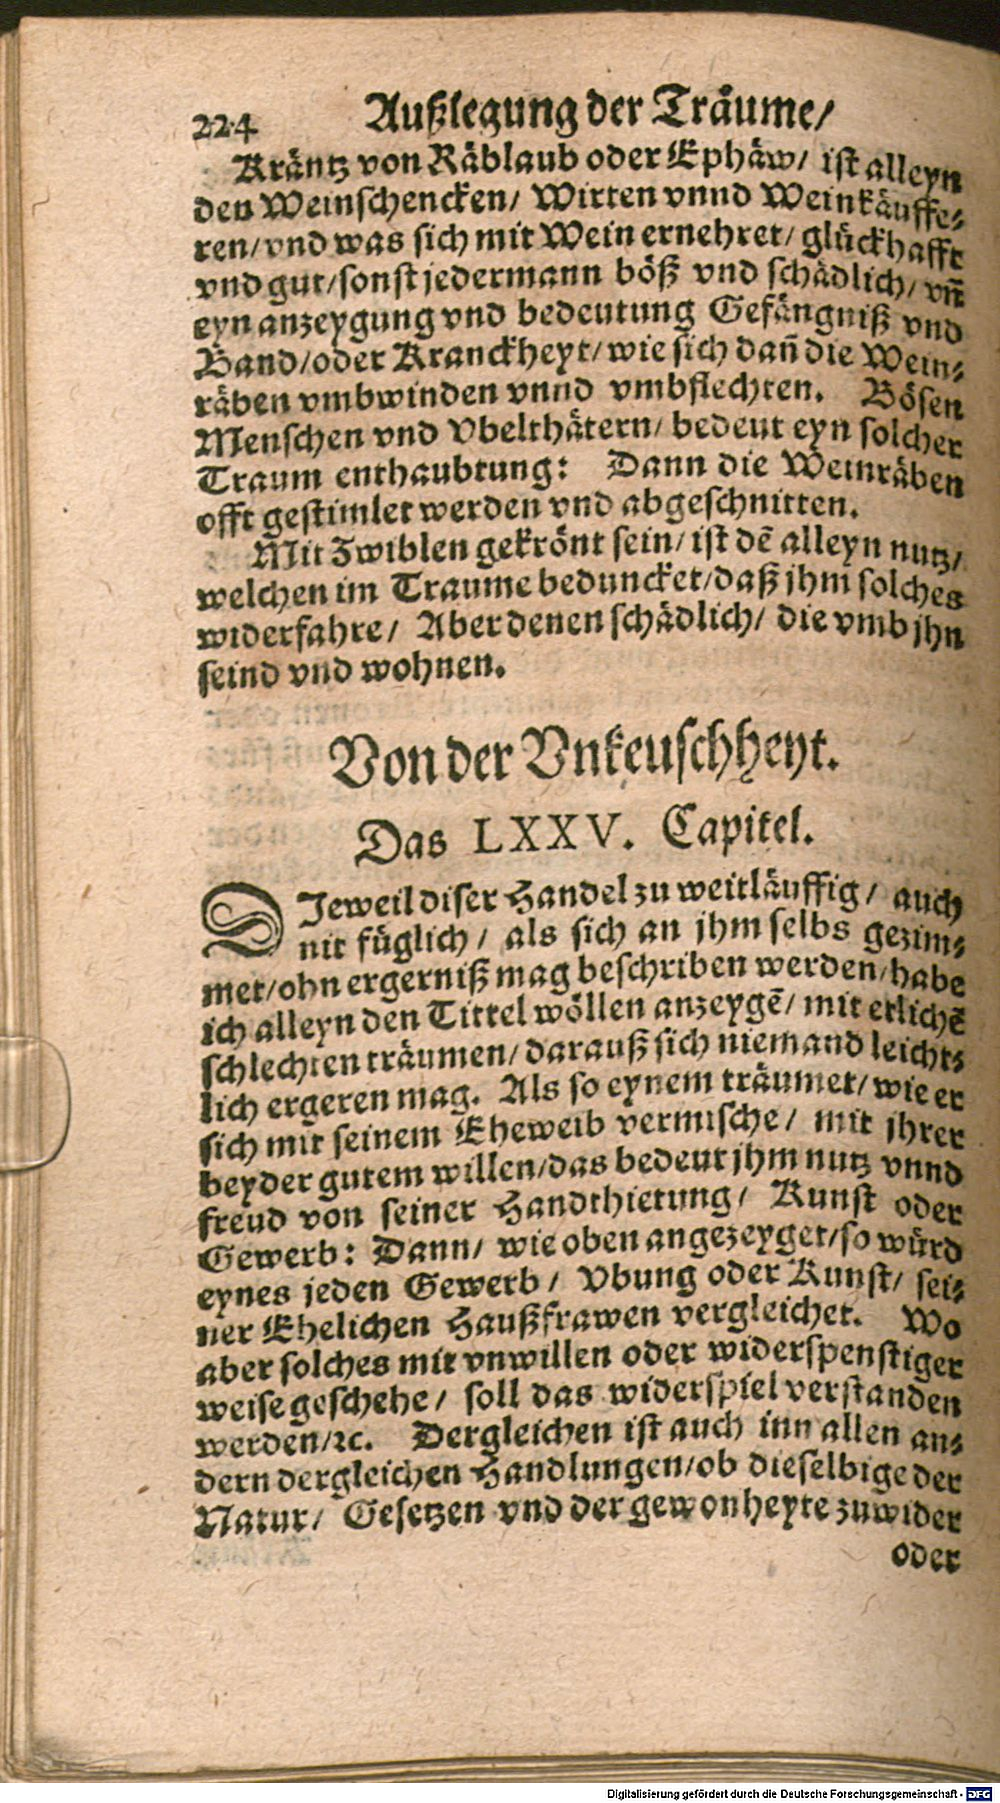 224 Außlegung der Träume/
Kräntz von Räblaub oder Ephäw/ ist alleyn
den Weinschencken/ Wirten vnnd Weinkäuffe-
ren/ vnd was sich mit Wein ernehret/ glückhafft
vnd gut/ sonst jedermann böß vnd schädlich/ vn̄
eyn anzeygung vnd bedeutung Gefängniß vnd
Band/ oder Kranckheyt/ wie sich dan̄ die Wein-
räben vmbwinden vnnd vmbflechten. Bösen
Menschen vnd Vbelthätern/ bedeut eyn solcher
Traum enthaubtung: Dann die Weinräben
offt gestimlet werden vnd abgeschnitten.
Mit Zwiblen gekrönt sein/ ist dē alleyn nutz/
welchen im Traume beduncket/ daß jhm solches
widerfahre/ Aber denen schädlich/ die vmb jhn
seind vnd wohnen.
Von der Vnkeuschheyt.
Das LXXV. Capitel.
DIeweil diser Handel zu weitläuffig/ auch
nit füglich/ als sich an jhm selbs gezim-
met/ ohn ergerniß mag beschriben werden/ habe
ich alleyn den Tittel wöllen anzeygē/ mit etlichē
schlechten träumen/ darauß sich niemand leicht-
lich ergeren mag. Als so eynem träumet/ wie er
sich mit seinem Eheweib vermische/ mit jhrer
beyder gutem willen/ das bedeut jhm nutz vnnd
freud von seiner Handthierung/ Kunst oder
Gewerb: Dann/ wie oben angezeyget/ so würd
eynes jeden Gewerb/ Vbung oder Kunst/ sei-
ner Ehelichen Haußfrawen vergleichet. Wo
aber solches mit vnwillen oder widerspenstiger
weise geschehe/ soll das widerspiel verstanden
werden/ ꝛc. Dergleichen ist auch inn allen an-
dern dergleichen Handlungen/ ob dieselbige der
Natur/ Gesetzen vnd der gewonheyte zuwider
oder
Digitalisierung gefördert durch die Deutsche Forschungsgemeinschaft - DFG